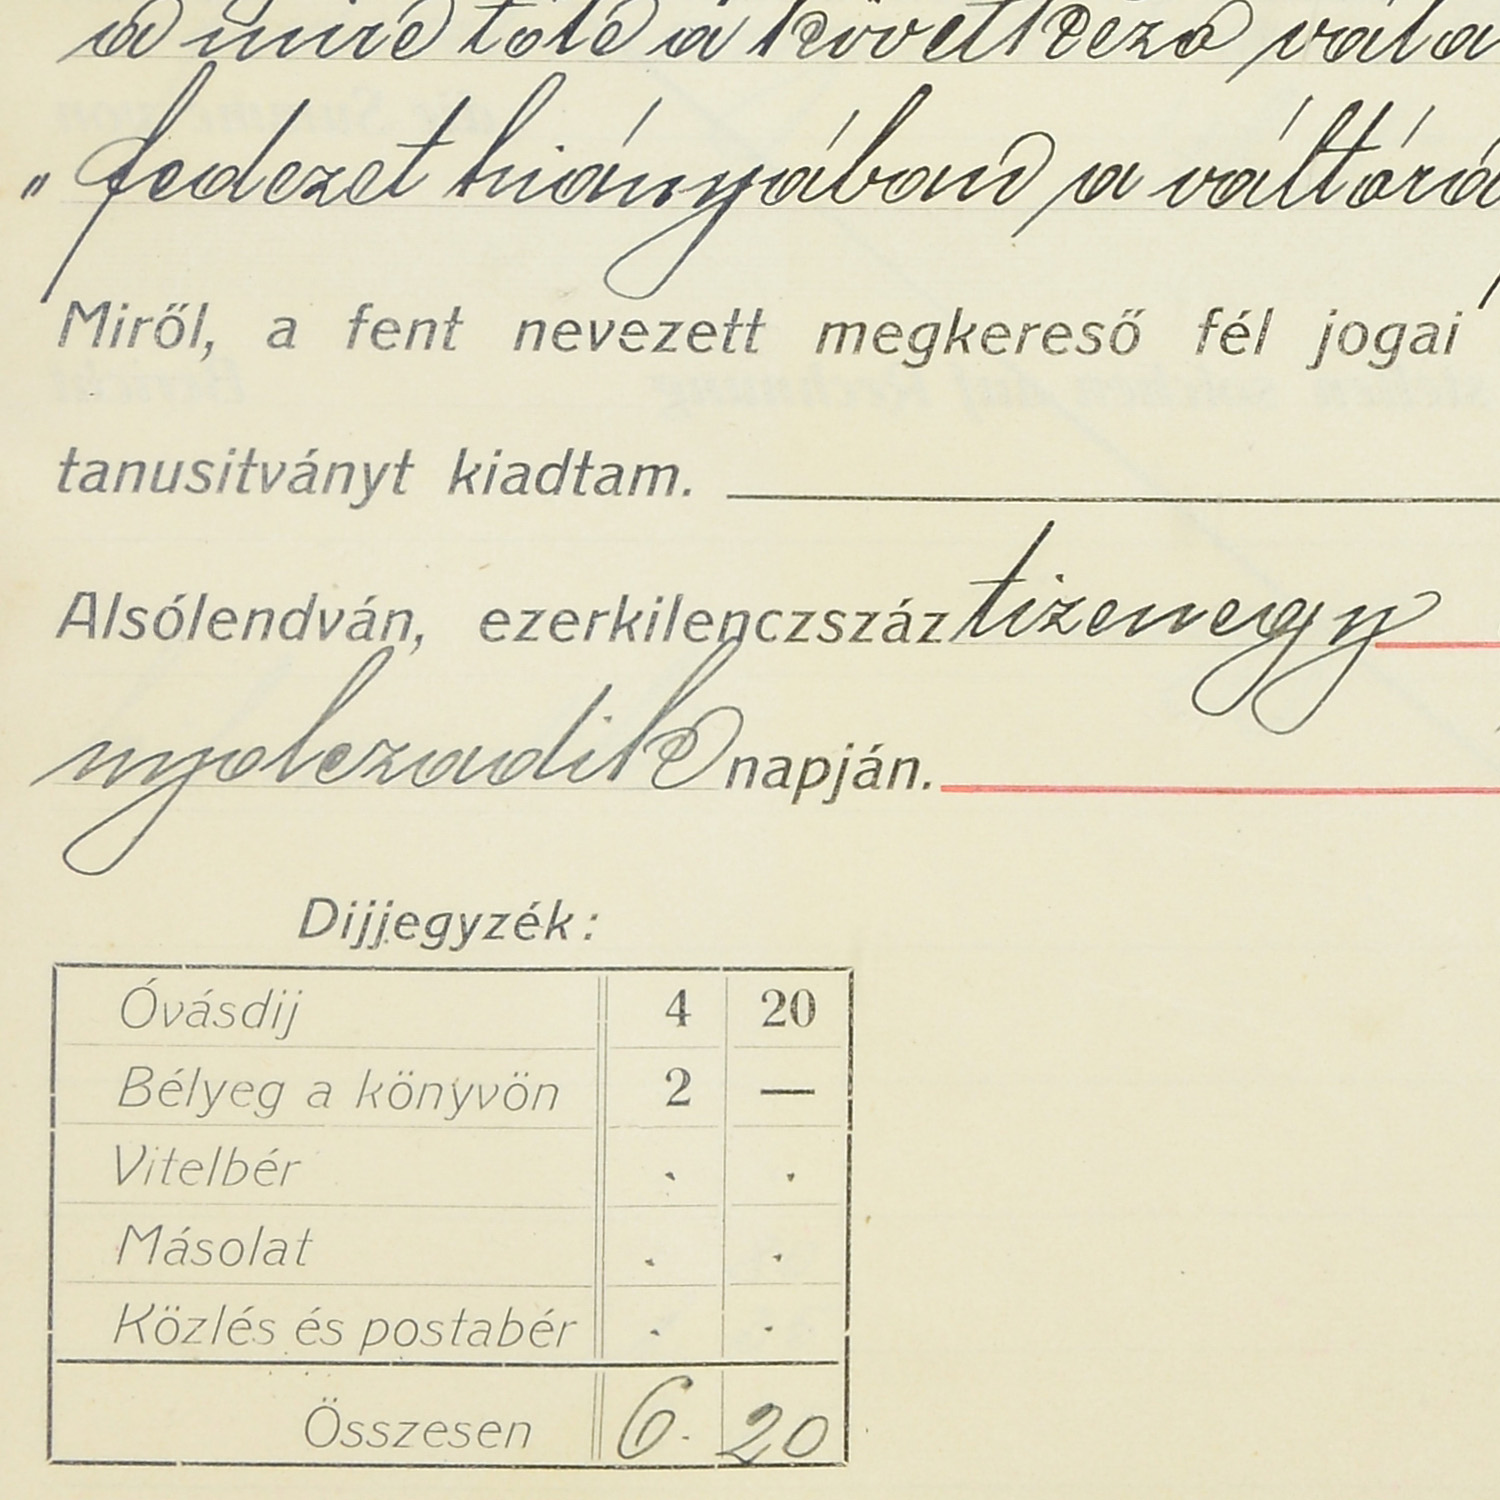 a mire tőle a következő vála
„fedezet hiányában a váltóra
Miről, a fent nevezett megkereső fél jogai
tanusitványt kiadtam.
Alsólendván, ezerkilenczszáz tizenegy
nyolczadik napján.
Dijjegyzék:
Óvásdij 4 20
Bélyeg a könyvön 2 —
Vitelbér . .
Másolat . .
Közlés és postabér . .
Összesen 6. 20